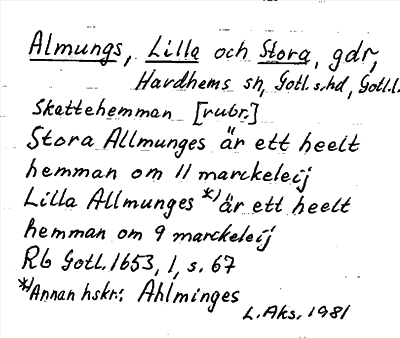 Almungs, Lilla och Stora, gdr,
Hardhems sn, Gotl. s. hd, Gotl. l.
Skattehemman [rubr.]
Stora Allmunges är ett heelt
hemman om 11 marckeleij
Lilla Allmunges *) är ett heelt
hemman om 9 marckeleij
Rb Gotl. 1653, 1, s. 67
*) Annan hskr: Ahlminges
L. Aks. 1981